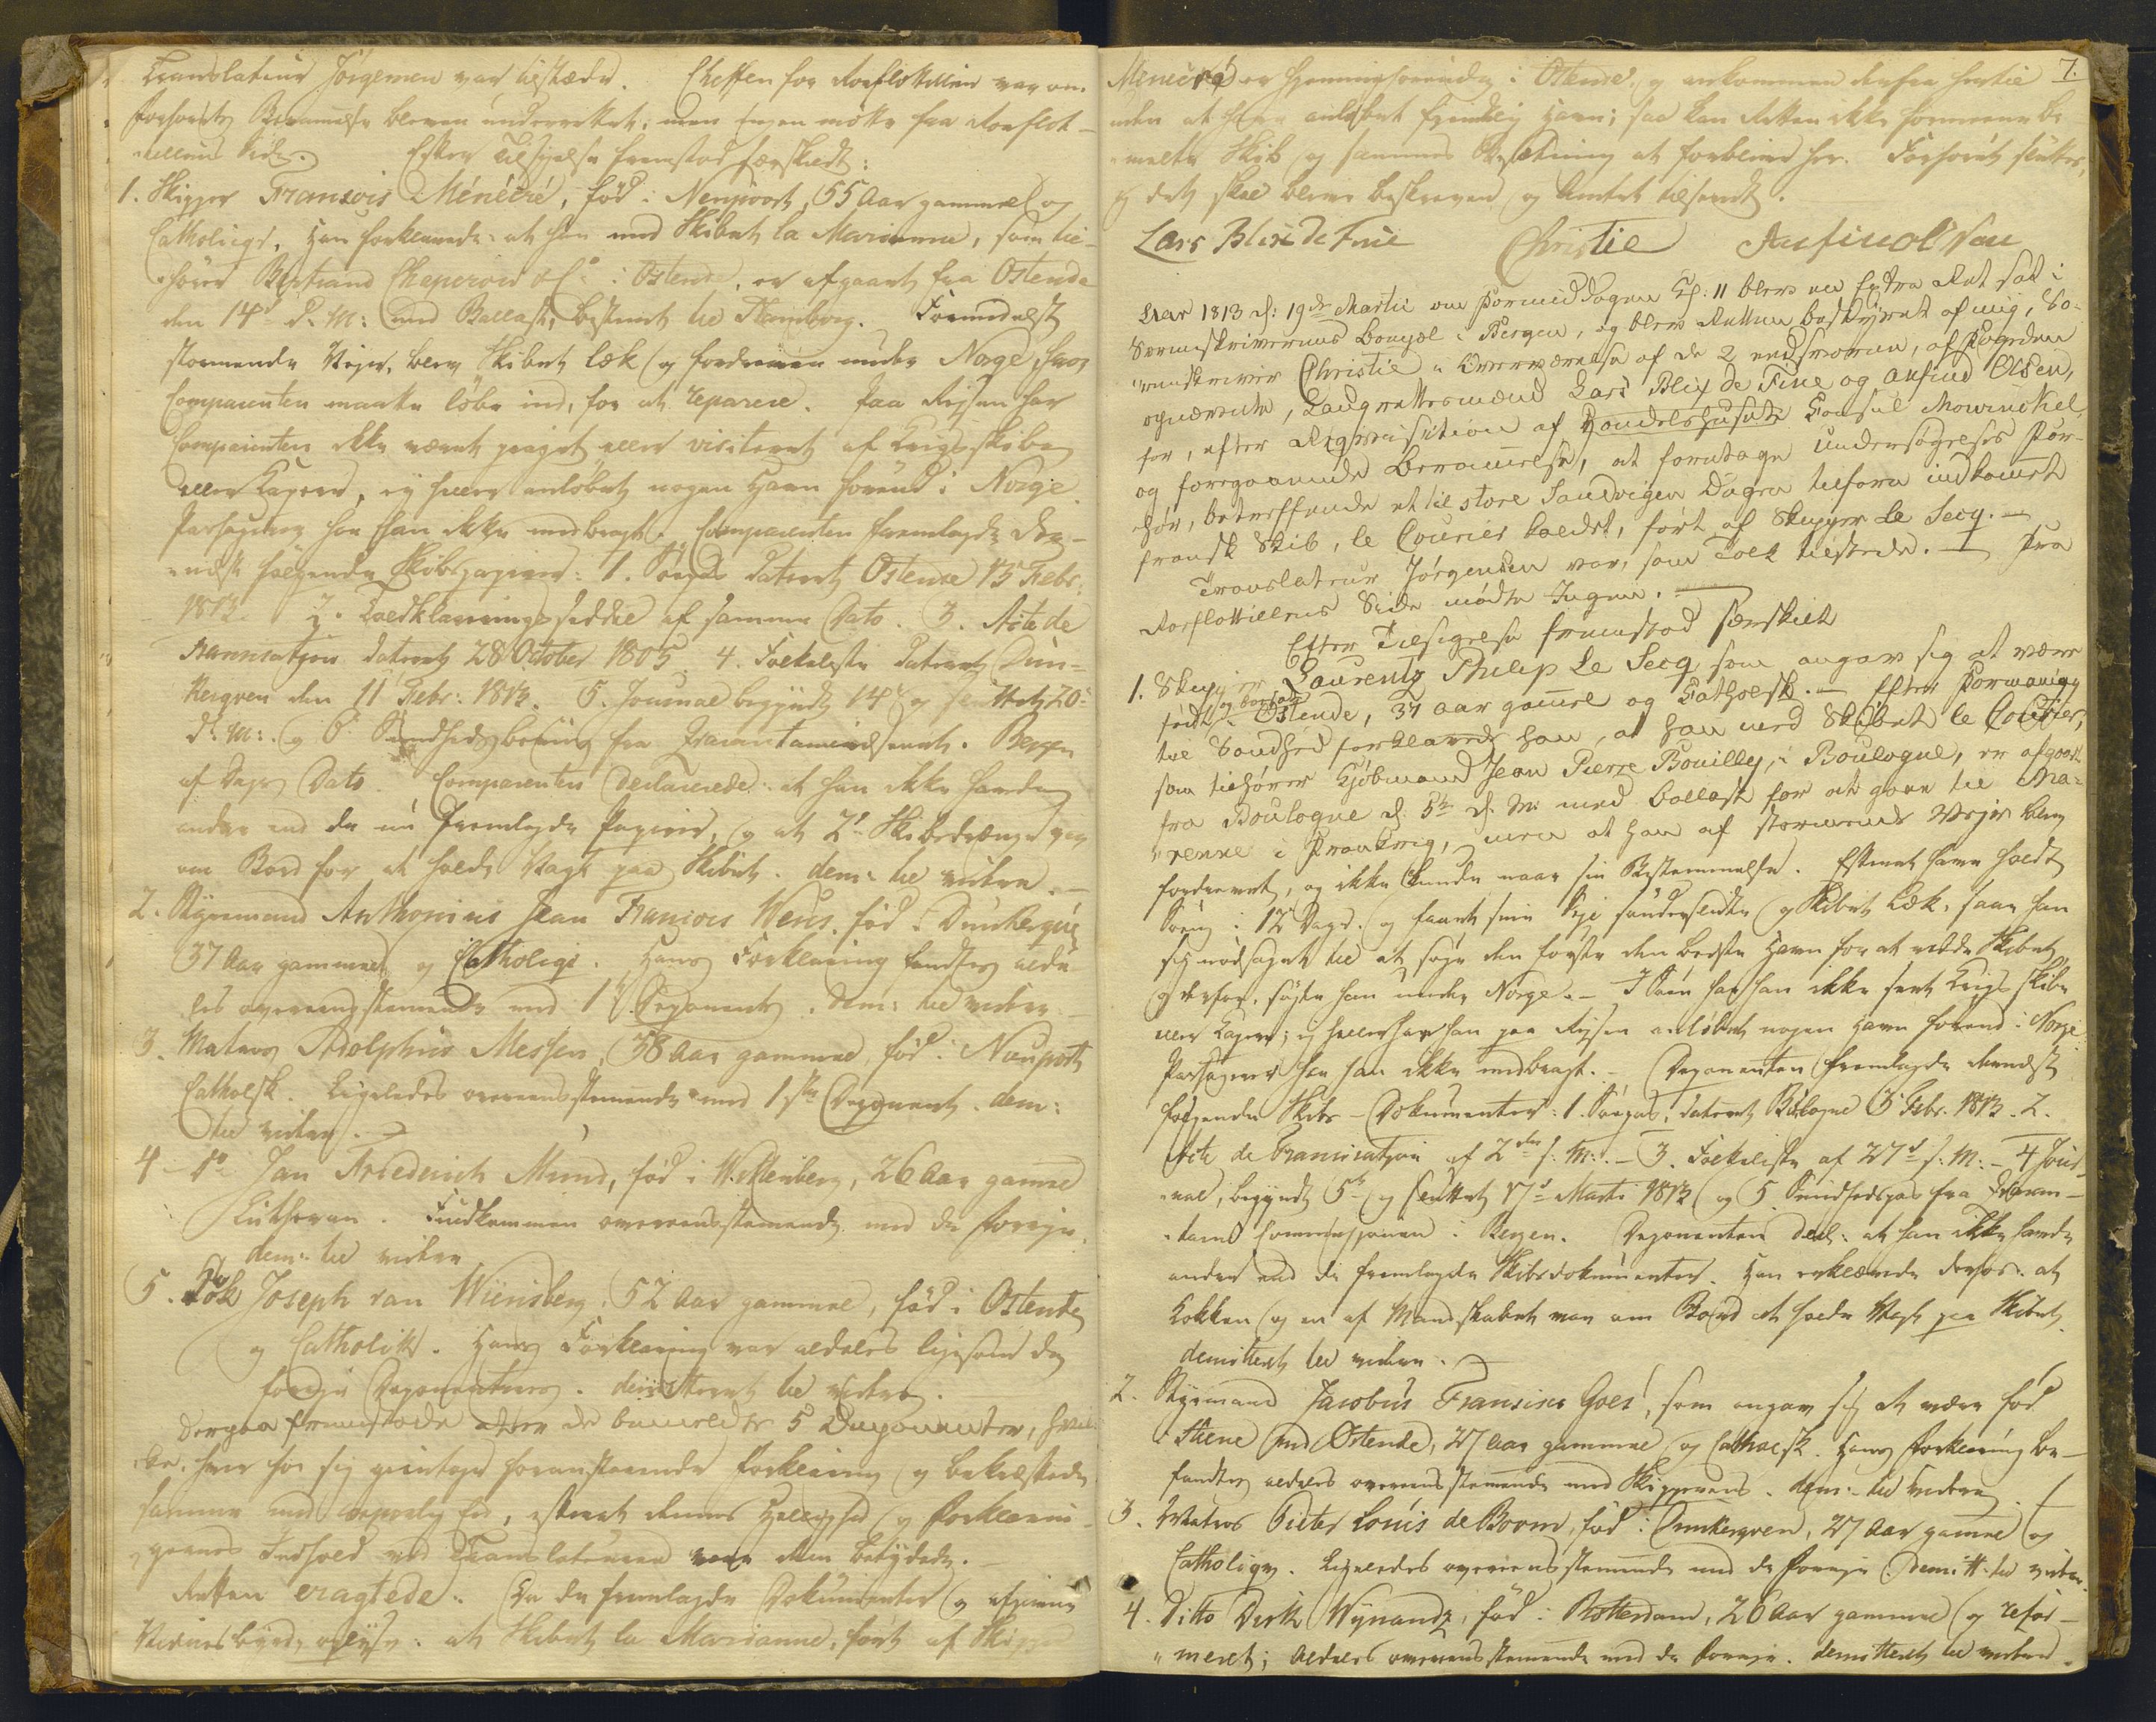 Translateur Jörgensen var tilstæde. Cheffen for Roeflottillen var om
Forhörets Berammelse bleven underrettet; men Ingen mötte fra Roeflot-
tillens Side. Efter Tilsigelse fremstod særskildt:
1. Skipper Fransois Ménétré, föd i Neuport, 55 Aar gammel og
Catholiqs. Han forklarede: at han med Skibet la Marianne, som til-
hörer Bertrand Cheperon & Co i Ostende, er afgaaet fra Ostende
den 14d d: M: med Ballast, bestemt til Hamborg. Formedelst
stormende Vejr, blev Skibet læk og fordreven under Norge, hvor
Comparenten maatte löbe ind, for at reparere. Paa Rejsen har
Comparenten ikke været prajet eller visiteret af Krigsskibe
eller Kapere, ej heller anlöbet nogen Havn forend i Norge.
Passagerer har han ikke medbragt. Comparenten fremlagde der-
næst fölgende Skibspapirer: 1. Söepas dateret Ostende 13 Febr:
1813. 2. Toldklareringsseddel af samme Dato. 3. Acte de
Francisation dateret 28 October 1805. 4. Folkeliste dateret Dün-
kerqven den 11 Febr: 1813. 5. Journal begyndt 14d og sluttet 20d
d: M: og 6. Sundhedsbeviis fra Qvarantainevæsenet. Bergen
af Dags Dato. Comparenten declarerede: at han ikke havde
andre end de nu fremlagde Papirer, og at 2de Skibsdrenge var
om Bord for at holde Vagt paa Skibet. dem: til videre.
2. Styrmand Anthonius Jean Francois Weus, föd i Dunkerque
37 Aar gammel og Catholiqs. Hans Forklaring fandtes alde-
les overeensstemmende med 1ste Deponents. Dem: til videre.
3. Matros Adolphus Messen, 38 Aar gammel, föd i Neuport
Catholsk. Ligeledes overeensstemmende med 1ste Deponent. dem:
til videre.
4 - do Jan Friederich Mund, föd i Wittenberg, 26 Aar gammel
Lutheran. Fuldkommen overeensstemmende med de forrige.
dem: til videre
5. Kok Joseph van Wiensberg. 52 Aar gammel, föd i Ostende
og Catholik. Hans Forklaring var aldeles ligesom de
forrige Deponenters. demitteret til videre.
Derpaa fremstode atter de bemeldte 5 Deponenter, hvil-
ke, hver for sig, gientoge foranstaaende Forklaring og bekræftede
samme med corporlig Eed, efterat dennes Hellighed og Forklarin-
gernes Indhold ved Translateuren var dem betydet.
Retten eragtede: Da de fremlagde Dokumenter og afgivne
Vidnesbyrd oplyse: at Skibet la Marianne, fört af Skipper
7.
Ménétré er hjemmehörende i Ostende, og ankommen derfra hertil
uden at have anlöbet fiendlig Havn; saa kan Retten ikke formeene be-
meldte Skib og sammes Besætning at forblive her. Forhöret sluttes,
og det skal blive beskreven og Amtet tilsendt.
Lars Blix de Fine Christie Anfind Olsen
Aar 1813 d: 19de Martii om Formiddagen Kl: 11 blev en Extra Ret sat i
Sorenskriverens Bopæl i Bergen, og blev Retten bestyret af mig, So-
renskriver Christie i Overværelse af de 2 eedsvorne, af Fogden
opnævnte, Laugrettesmænd Lars Blix de Fine og Anfind Olsen,
for, efter Reqvisition af Handelshuset Konsul Mowinckel
og foregaaende Berammelse, at foretage Undersögelses For-
hör, betreffende et til store Sandvigen Dagen tilforn indkommet
fransk Skib, le Courier kaldet, fört af Skipper Le Secq.
Translateur Jörgensen var, som Tolk tilstede. Fra
Roeflottillens Side mödte Ingen.
Efter Tilsigelse fremstod særskilt
1. Skipper Laurentz Philip Le Secq som angav sig at være
födt og borger i Ostende, 37 Aar gammel og Catholsk. Efter Formaning
til Sandhed forklarede han, at han med Skibet le Courier,
som tilhörer Kjöbmand Jean Pierre Bouilly, i Boulogne, er afgaaet
fra Boulogne d: 5te d: M: med Ballast for at gaae til Ma-
renne i Frankrig, men at han af stormende Vejr blev
fordrevet, og ikke kunde naae sin Bestemmelse. Efterat have holdt
Söen i 12 Dage og faaet sine Sejl sönderslidte og Skibet læk, saae han
sig nödsaget til at söge den förste den bedste Havn for at redde Skibet,
og derfor sögte han under Norge. I Söen har han ikke seet Krigsskibe
eller Kapere; ej heller har han paa Rejsen anlöbet nogen Havn forend i Norge
Passagerer har han ikke medbragt. Deponenten fremlagde dernæst
fölgende Skibs-Dokumenter: 1. Söepas, dateret Bologne 3 Febr. 1813. 2.
Acte de Francisation af 2den s: M: - 3. Folkeliste af 27d s: M: - 4 Jour-
nal, begyndt 5te og sluttet 17d Marti 1813 og 5. Sundhedspas fra Qvaran-
taine Commissionen i Bergen. Deponenten decl: at han ikke havde
andre end de fremlagde Skibsdokumenter. Han erklærede derhos: at
Kokken og en af Mandskabet var om Bord at holde Vagt paa Skibet.
demitteret til videre.
2. Styrmand Jacobus Fransiscus Goes, som angav sig at være föd
i Stene ved Ostende, 27 Aar gammel og Catholsk. Hans Forklaring be-
fandtes aldeles overeensstemmende med Skipperens. dem: til videre
3. Matros Pieter Louis de Boom, föd i Dunkerqven, 27 Aar gammel og
Catholiqs. Ligeledes overeensstemmende med de forrige. Demitt: til videre.
4. Ditto Derk Wynandz, föd i Rotterdam, 26 Aar gammel og refor-
meret; Aldeles overeensstemmende med de forrige. demitteret til videre.